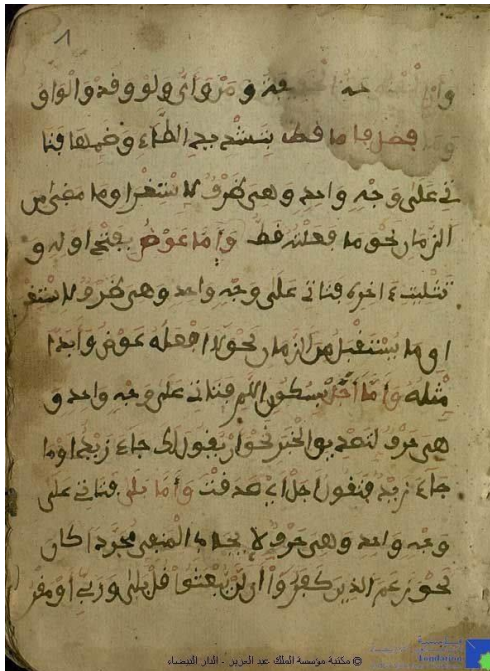 ٨
ومن وأى ولو وقد والواو
فصل فاما قط بتشديد الطاء وضمها فتا
تي على وجه واحد وهي ظرف لاستغراق ما مضى من
الزمان نحو ما فعلته قط وأما عوض بفتح اوله و
تثليث ءاخره فتاتي على وجه واحد وهي ظرف لاستغر
او ما يستقبل من الزمان نحو لا افعله عوض وأبدا
مثله وأما أجل بسكون اللام فتاتي على وجه واحد و
هي حرف لتصديق الخبر نحو ان يقول لك جاء زيد او ما
جاء زيد فتقول اجل اي صدقت وأما بلى فتاتي على
وجه واحد وهي حرف لإيجاب المنفي مجردا كان
نحو زعم الذين كفروا أن لن يبعثوا قل بلى وربي او مقر
© مكتبة مؤسسة الملك عبد العزيز - الدار البيضاء